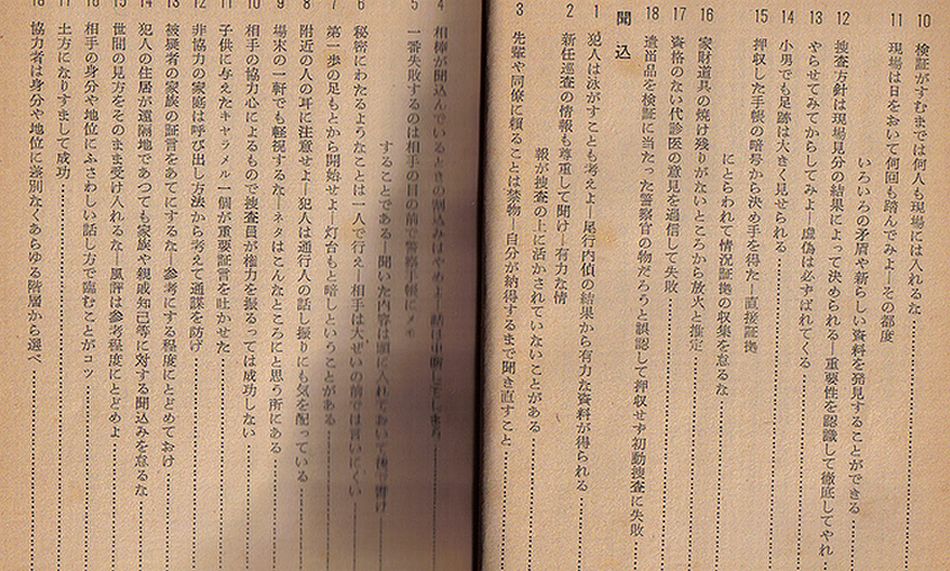 10 検証がすむまでは何人も現場には入れるな
11 現場は日をおいて何回も踏んでみよ―その都度
いろいろの矛盾や新らしい資料を発見することができる
12 捜査方針は現場見分の結果によって決められる―重要性を認識して徹底してやれ
13 やらせてみてからしてみよ―虚偽は必ずばれてくる
14 小男でも足跡は大きく見せられる
15 押収した手帳の暗号から決め手を得た―直接証拠
にとらわれて情況証拠の収集を怠るな
16 家財道具の焼け残りがないところから放火と推定
17 資格のない代診医の意見を過信して失敗
18 遺留品を検証に当たった警察官の物だろうと誤認して押収せず初動捜査に失敗
聞込
1 犯人は泳がすことも考えよ―尾行内偵の結果から有力な資料が得られる
2 新任巡査の情報も尊重して聞け―有力な情
報が捜査の上に活かされていないことがある
3 先輩や同僚に頼ることは禁物―自分が納得するまで聞き直すこと
4 相棒が聞込んでいるときの割込みはやめよ―話は中断してしまう
5 一番失敗するのは相手の目の前で警察手帳にメモ
することである―聞いた内容は頭に入れておいて後で書け
6 秘密にわたるようなことは一人で行え―相手は大ぜいの前では言いにくい
7 第一歩の足もとから開始せよ―灯台もと暗しということがある
8 附近の人の耳に注意せよ―犯人は通行人の話し振りにも気を配っている
9 場末の一軒でも軽視するな―ネタはこんなところにと思う所にある
10 相手の協力心によるもので捜査員が権力を振るっては成功しない
11 子供に与えたキャラメル一個が重要証言を吐かせた
12 非協力の家庭は呼び出し方法から考えて通謀を防げ
13 被疑者の家族の証言をあてにするな―参考にする程度にとどめておけ
14 犯人の住居が遠隔地であっても家族や親戚知己等に対する聞込みを怠るな
15 世間の見方をそのまま受け入れるな―風評は参考程度にとどめよ
16 相手の身分や地位にふさわしい話し方で臨むことがコツ
17 土方になりすまして成功
18 協力者は身分や地位に差別なくあらゆる階層から選べ